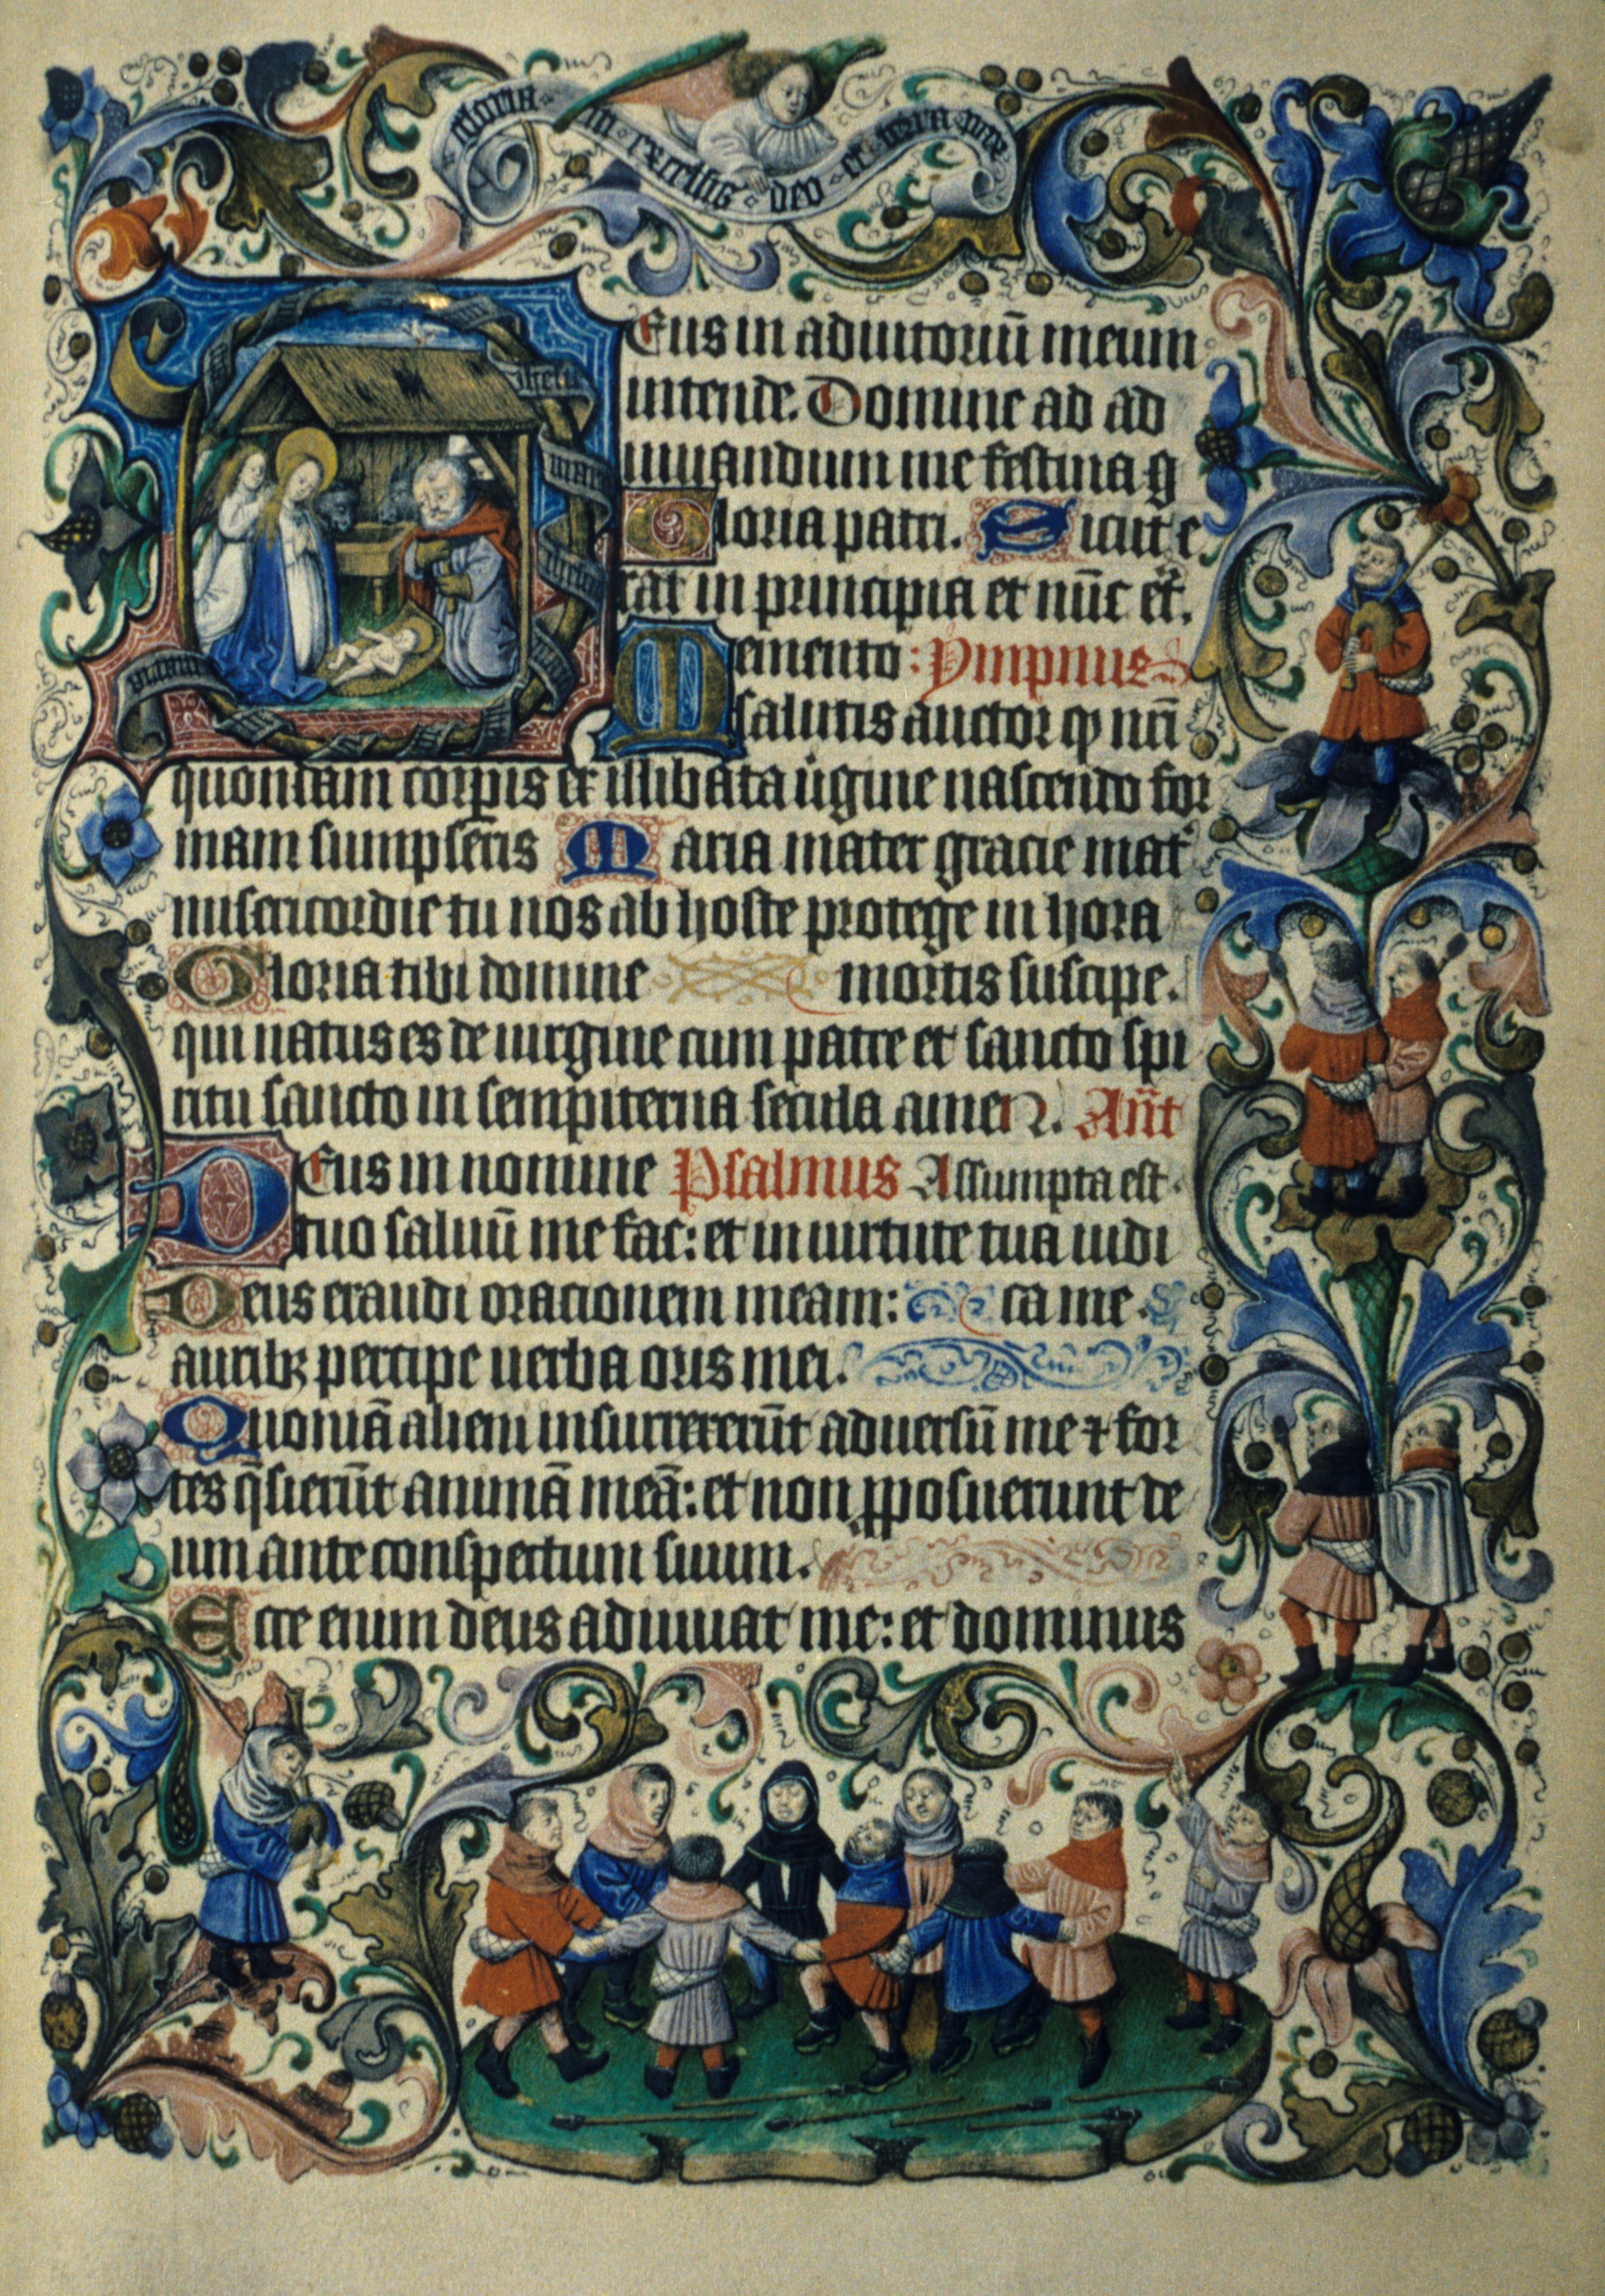 gloria in excelsis deo et in terra pax
Eus in adiutoriū meum
intende. Domine ad ad
iuuandum me festina g
Gloria patri. Sicut e
rat in principia et nūc et.
Memento: Ympnus
salutis auctor ꝙ nr̄i
quondam corpis ex illibata ūgine nascendo for
mam sumpseris Maria mater gracie mat̾
misericordie tu nos ab hoste protege in hora
Gloria tibi domine mortis suscipe.
qui natus es de uirgine cum patre et sancto spi
ritu sancto in sempiterna secula amen. Ant̄
DEus in nomine Psalmus Assumpta est.
tuo saluū me fac: et in uirtute tua iudi
Deus exaudi orationem meam: ca me.
auribꝫ percipe uerba oris mei.
Quoniā alieni insurrexerūt aduersū me ⁊ for
tes q̄sierūt animā meā: et non ꝓposuerunt de
um ante conspectum suum.
Ecce enim deus adiuuat me: et dominus